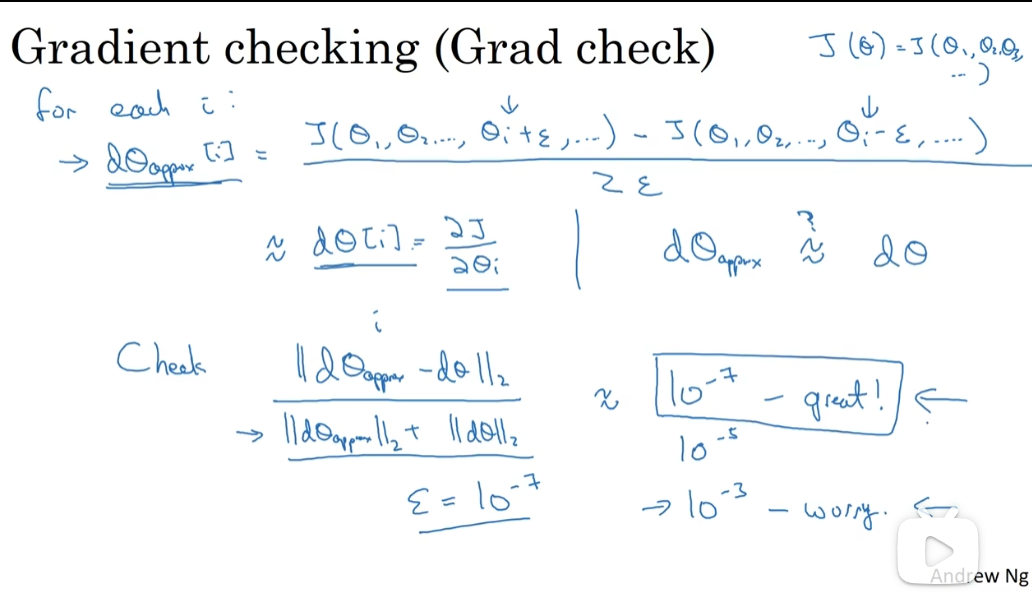 Gradient checking (Grad check)
J(θ) = J(θ₁, θ₂, θ₃, ...)
for each i:
→ dθapprox[i] = J(θ₁, θ₂, ..., θᵢ+ε, ...) - J(θ₁, θ₂, ..., θᵢ-ε, ...) / 2ε
≈ dθ[i] = ∂J/∂θᵢ | dθapprox ≈? dθ
i
Check ||dθapprox - dθ||₂ / ||dθapprox||₂ + ||dθ||₂ ≈ 10⁻⁷ - great! ←
10⁻⁵
ε = 10⁻⁷ → 10⁻³ - worry. ←
Andrew Ng